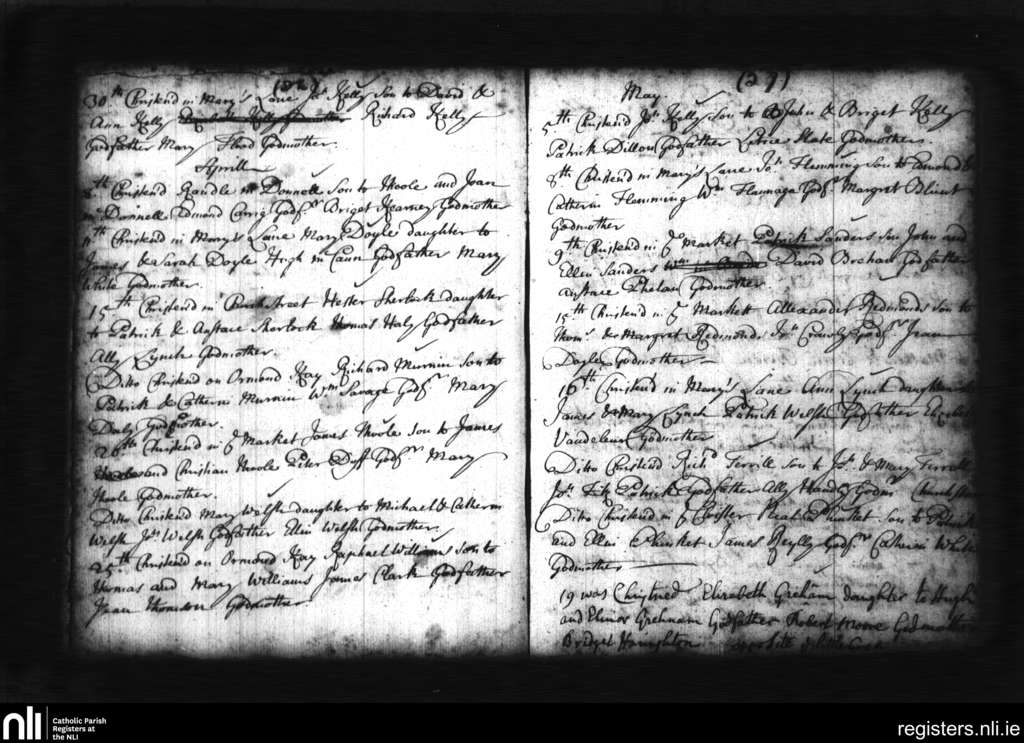 30th Christend in Mary's Lane Jos Kelly Son to David &
Ann Kelly Richard Kelly
Godfather Mary Flood Godmother.
Aprill
th Christend Randle Mc Donnell Son to Toole and Joan
Mc Donnell Edmond Carrig Godfr Briget Kearney Godmother
11th Christend in Mary's Lane Mary Doyle daughter to
James & Sarah Doyle Hugh Mc Cann Godfather Mary
White Godmother.
15th Christend in Hester Sherlock daughter
to Patrick & Anstace Sherlock Thomas Haly Godfather
Ally Lynch Godmother.
Ditto Christend on Ormond Kay Richard Murnin Son to
Patrick & Catherin Murnin Wm Savage Godfr Mary
Daly Godmother.
26th Christend in ye Market James Toole Son to James
and Christian Toole Peter Duff Godfr Mary
Toole Godmother.
Ditto Christend Mary Welsh daughter to Michael & Catherin
Welsh Jos Welsh Godfather Ellin Welsh Godmother.
25th Christend on Ormond Kay Raphael Williams Son to
Thomas and Mary Williams James Clark Godfather
Jean Godmother
(29)
May.
5th Christend Jos Kelly Son to John & Briget Kelly
Patrick Dillon Godfather Letice Godmother.
8th Christend in Mary's Lane Jos Flemming Son to &
Catherin Flemming Wm Godfr Margret
Godmother
9th Christend in ye Market Patrick Sanders Son John and
Ellin Sanders David Godfather
Anstace Phelan Godmother
15th Christend in ye Market Allexander Redmond Son to
Thoms & Margret Redmond Godfr Jean
Doyle Godmother
16th Christend in Mary's Lane Ann Lynch daughter to
James & Mary Lynch Patrick Welsh Godfather
Vandeleur Godmother
Ditto Christend Richd Ferrill Son to Jos & Mary Ferrill
Jos Fitz Patrick Godfather Ally Godmr
Ditto Christend in ye Plunket son to Patrick
and Ellin Plunket James Reylly Godfr Catherin White
Godmother
19 was Chrystned Elizabeth Greham daughter to Hugh
and Elinor Grehnam Godfather Robert Moore Godmother
Bridget Haughton
nli
Catholic Parish
Registers at
the NLI
registers.nli.ie